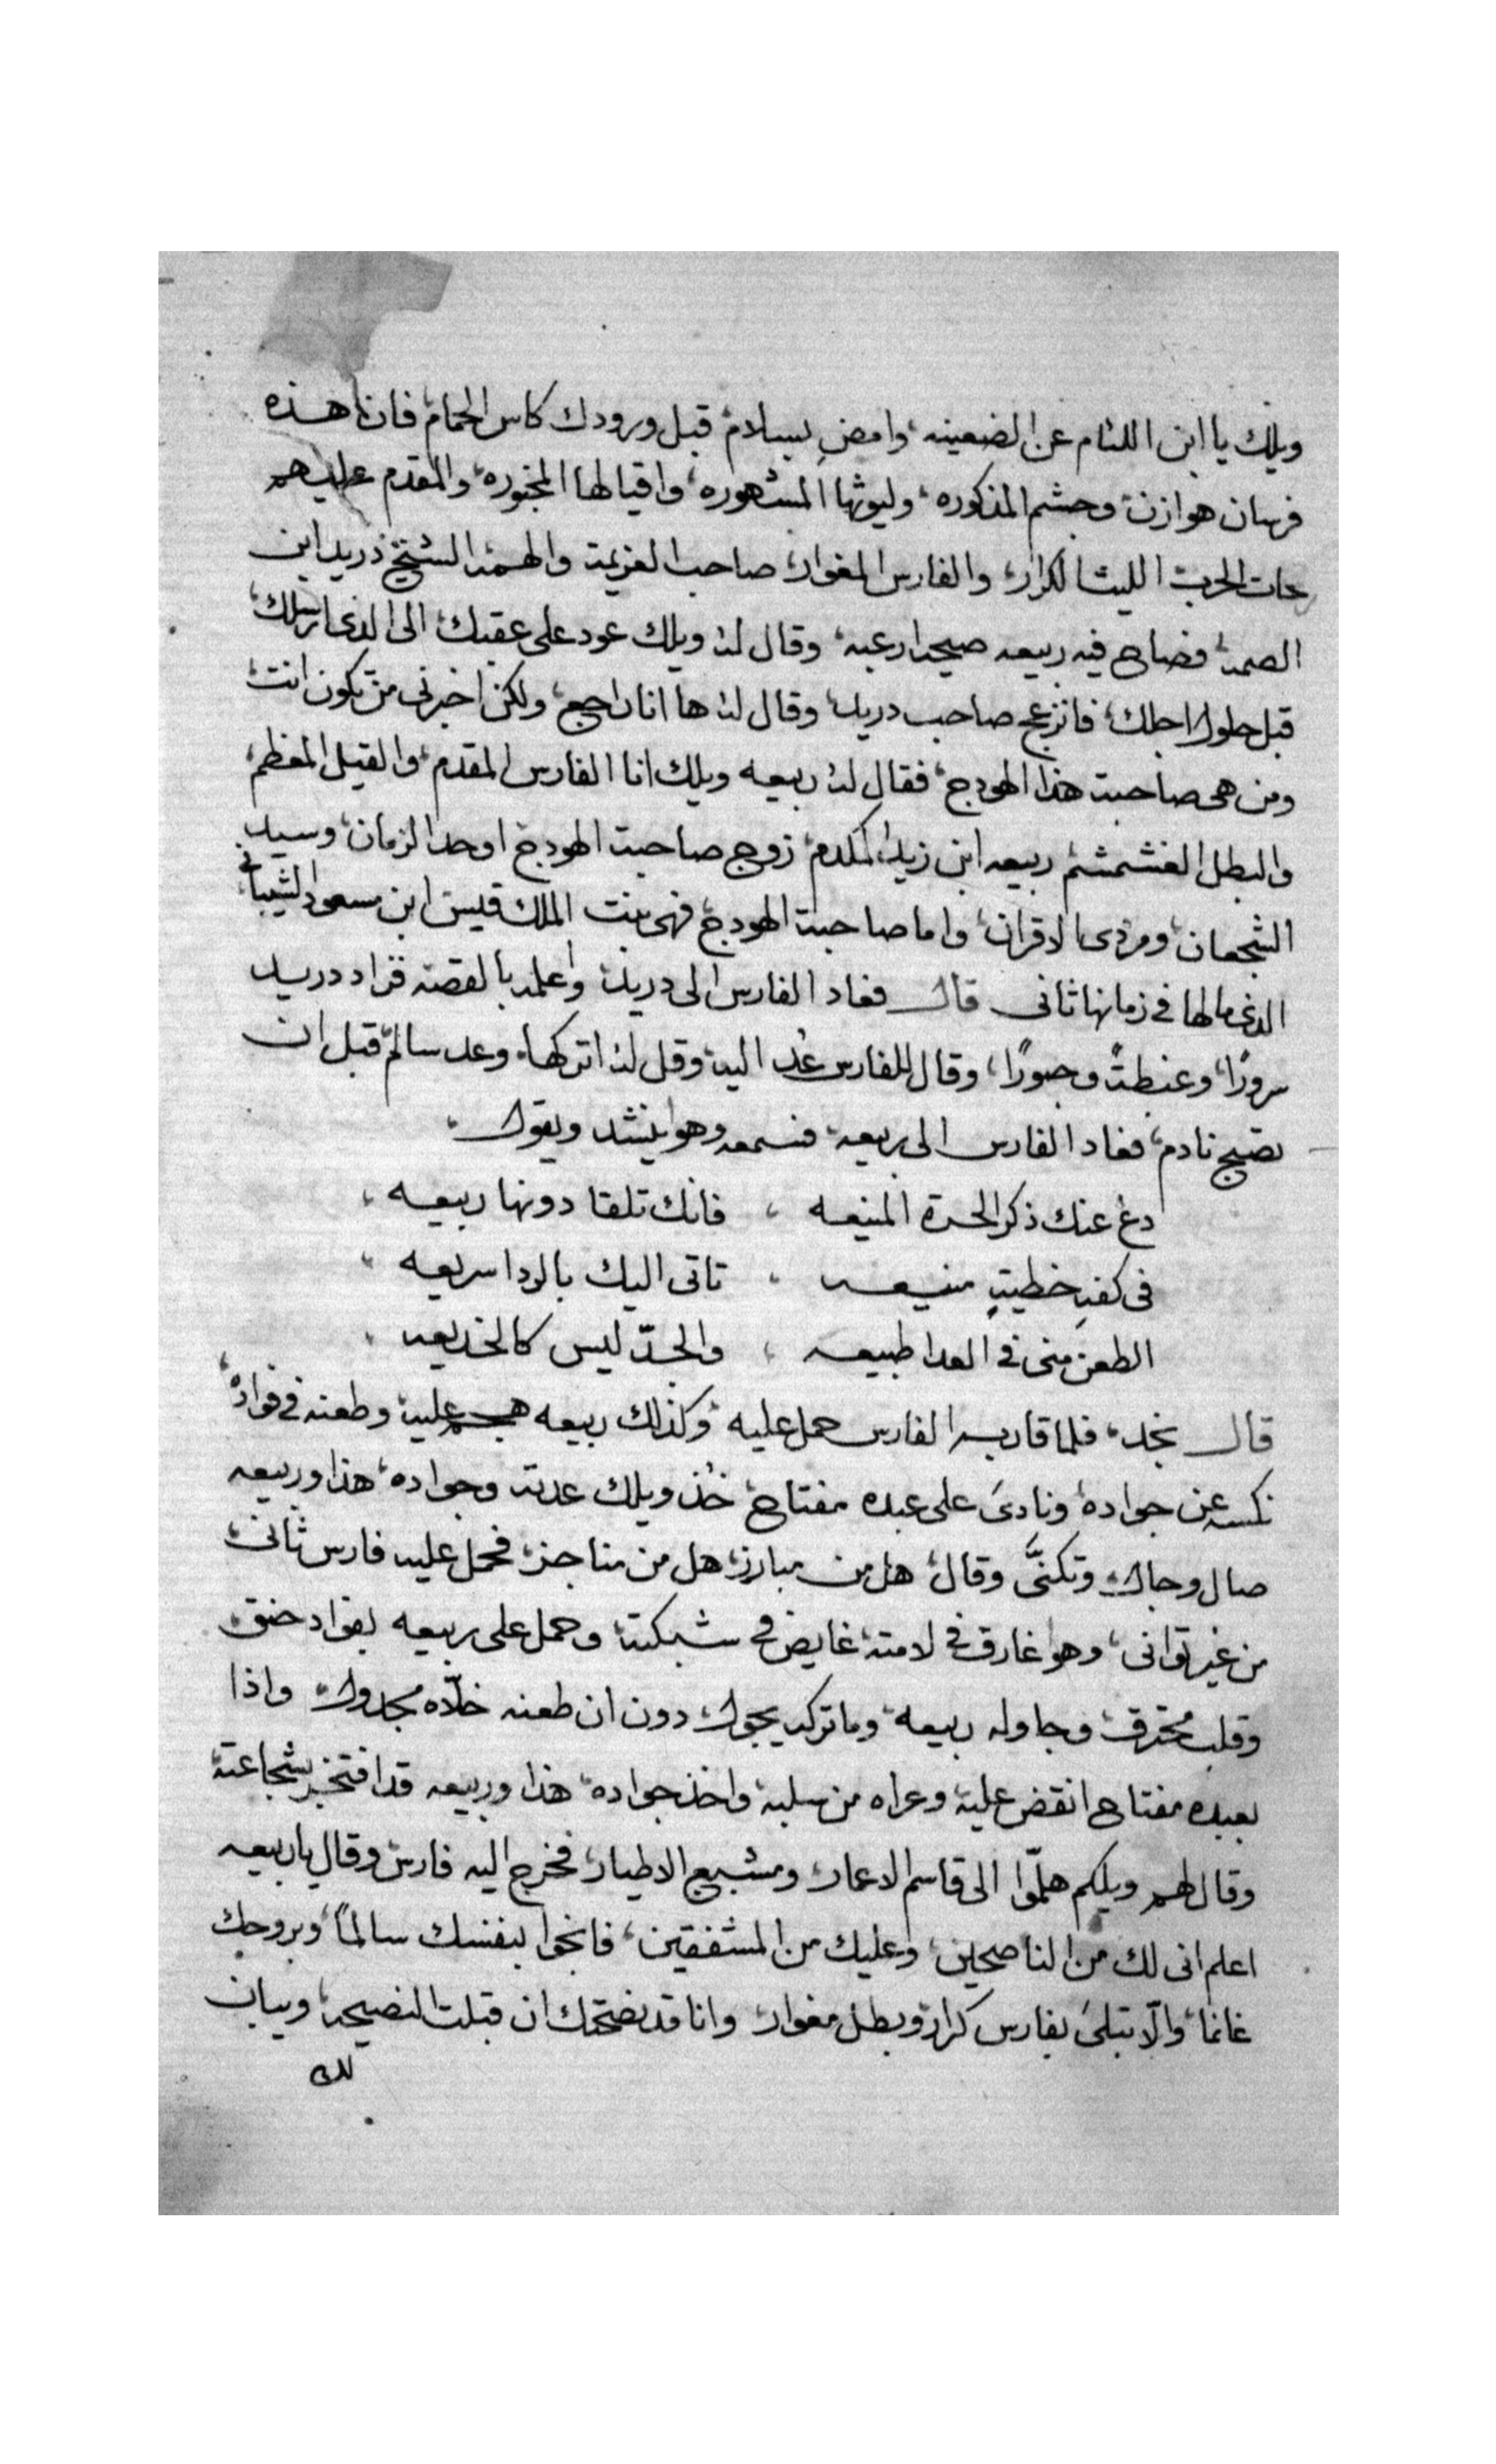 ويلك يا ابن اللئام عن الضعينه، وامضِ بسلام، قبل ورودك كاس الحمام، فان هذه
فرسان هوازن، وجشم المذكوره، وليوثها المشهوره، واقيالها المخبوره، والمقدم عليهم
الحرب، الليث الكرار، والفارس المغوار، صاحب العزيمة والهمة، الشيخ دريد ابن
الصمة، فصاح فيه ربيعه صيحة ارعبه، وقال له ويلك عود على عقبك، الى الذى ارسلك،
قبل حلول اجلك، فانزعج صاحب دريد، وقال له ها انا راجع، ولكن اخبرنى من تكون انت،
ومن هى صاحبت هذا الهودج، فقال له ربيعه ويلك انا الفارس المقدم، والقيل المعظم،
والبطل الغشمشم، ربيعه ابن زيد المكدم، زوج صاحبت الهودج، اوحد الزمان، وسيد
الشجعان، ومردى الاقران، واما صاحبة الهودج، فهى بنت الملك قيس ابن مسعود الشيبانى،
الذى مالها فى زمانها ثانى قال فعاد الفارس الى دريد، واعلمه بالقصه فزاد دريد
سرورًا، وغبطةً وحبورًا، وقال للفارس عُد اليه، وقل له اتركها، وعد سالم، قبل ان
تصبح نادم، فعاد الفارس الى ربيعه، فسمعه وهو ينشد ويقول،
دع عنك ذكر الحرة المنيعه ، فانك تلقا دونها ربيعه ،
فى كفهِ خطيةٍ منيعه ، تاتى اليك بالردا سريعه ،
الطعن منى فى العدا طبيعه ، والجدّ ليس كالخديعه ،
قال نجد، فلما قاربه الفارس حمل عليه، وكذلك ربيعه هجم عليه، وطعنه فى فواده،
نكسه عن جواده، ونادىَ على عبده مفتاح، خُذ ويلك عدته وجواده، هذا وربيعه
صال وجال، وتكنَّى وقال، هل من مبارز، هل من مناجز، فحمل عليه فارس ثانى،
من غير توانى، وهو غارق فى لامته، غايض فى شبكته، وحمل على ربيعه بفواد حنق،
وقلب محترق، وجاوله ربيعه، وما تركه يجول، دون ان طعنه خلّاه مجدول، واذا
بعبده مفتاح انقض عليه، وعراه من سلبه، واخذ جواده، هذا وربيعه قد افتخر بشجاعته،
وقال لهم ويلكم هلمّوا الى قاسم الاعمار، ومشبع الاطيار، فخرج اليه فارس، وقال ياربيعه
اعلم انى لك من الناصحين، وعليك من المشفقين، فانجوا بنفسك سالمًا، وبروحك
غانما، والّا تبتلىَ بفارس كرار، وبطل مغوار، وانا قد نصحتك ان قبلت النصيحه، وبيان
لك